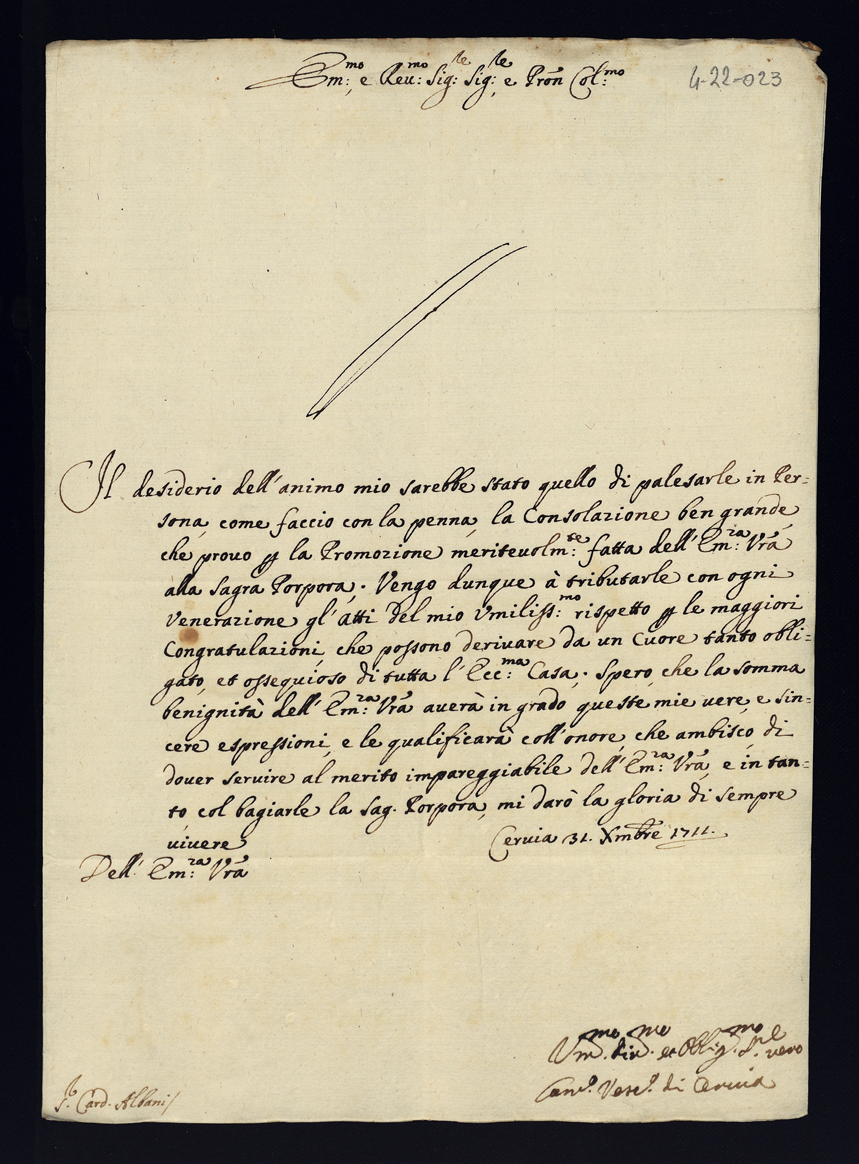 Em:mo e Reu:mo Sig:re Sig:re, e Pron Col:mo
4-22-023
Il desiderio dell'animo mio sarebbe stato quello di palesarle in Per=
sona, come faccio con la penna, la Consolazione ben grande,
che prouo p la Promozione meriteuolm:te fatta dell'Em:za Vrā
alla Sagra Porpora. Vengo dunque à tributarle con ogni
Venerazione gl'Atti del mio Vmiliss:mo rispetto p le maggiori
Congratulazioni, che possono deriuare da un Cuore tanto obli=
gato, et ossequioso di tutta l'Ecc:ma Casa. Spero, che la somma
benignità dell'Em:za Vrā auerà in grado queste mie uere, e sin=
cere espressioni, e le qualificarà coll'onore, che ambisco, di
douer seruire al merito impareggiabile dell'Em:za Vrā, e in tan=
to col bagiarle la Sag. Porpora, mi darò la gloria di sempre
uiuere
Ceruia 31. Xmbre 1711.
Dell'Em:za Vrā
Vm.mo diu.mo et Obblig.mo uero
Vesc.o di Ceruia
Card. Albani/